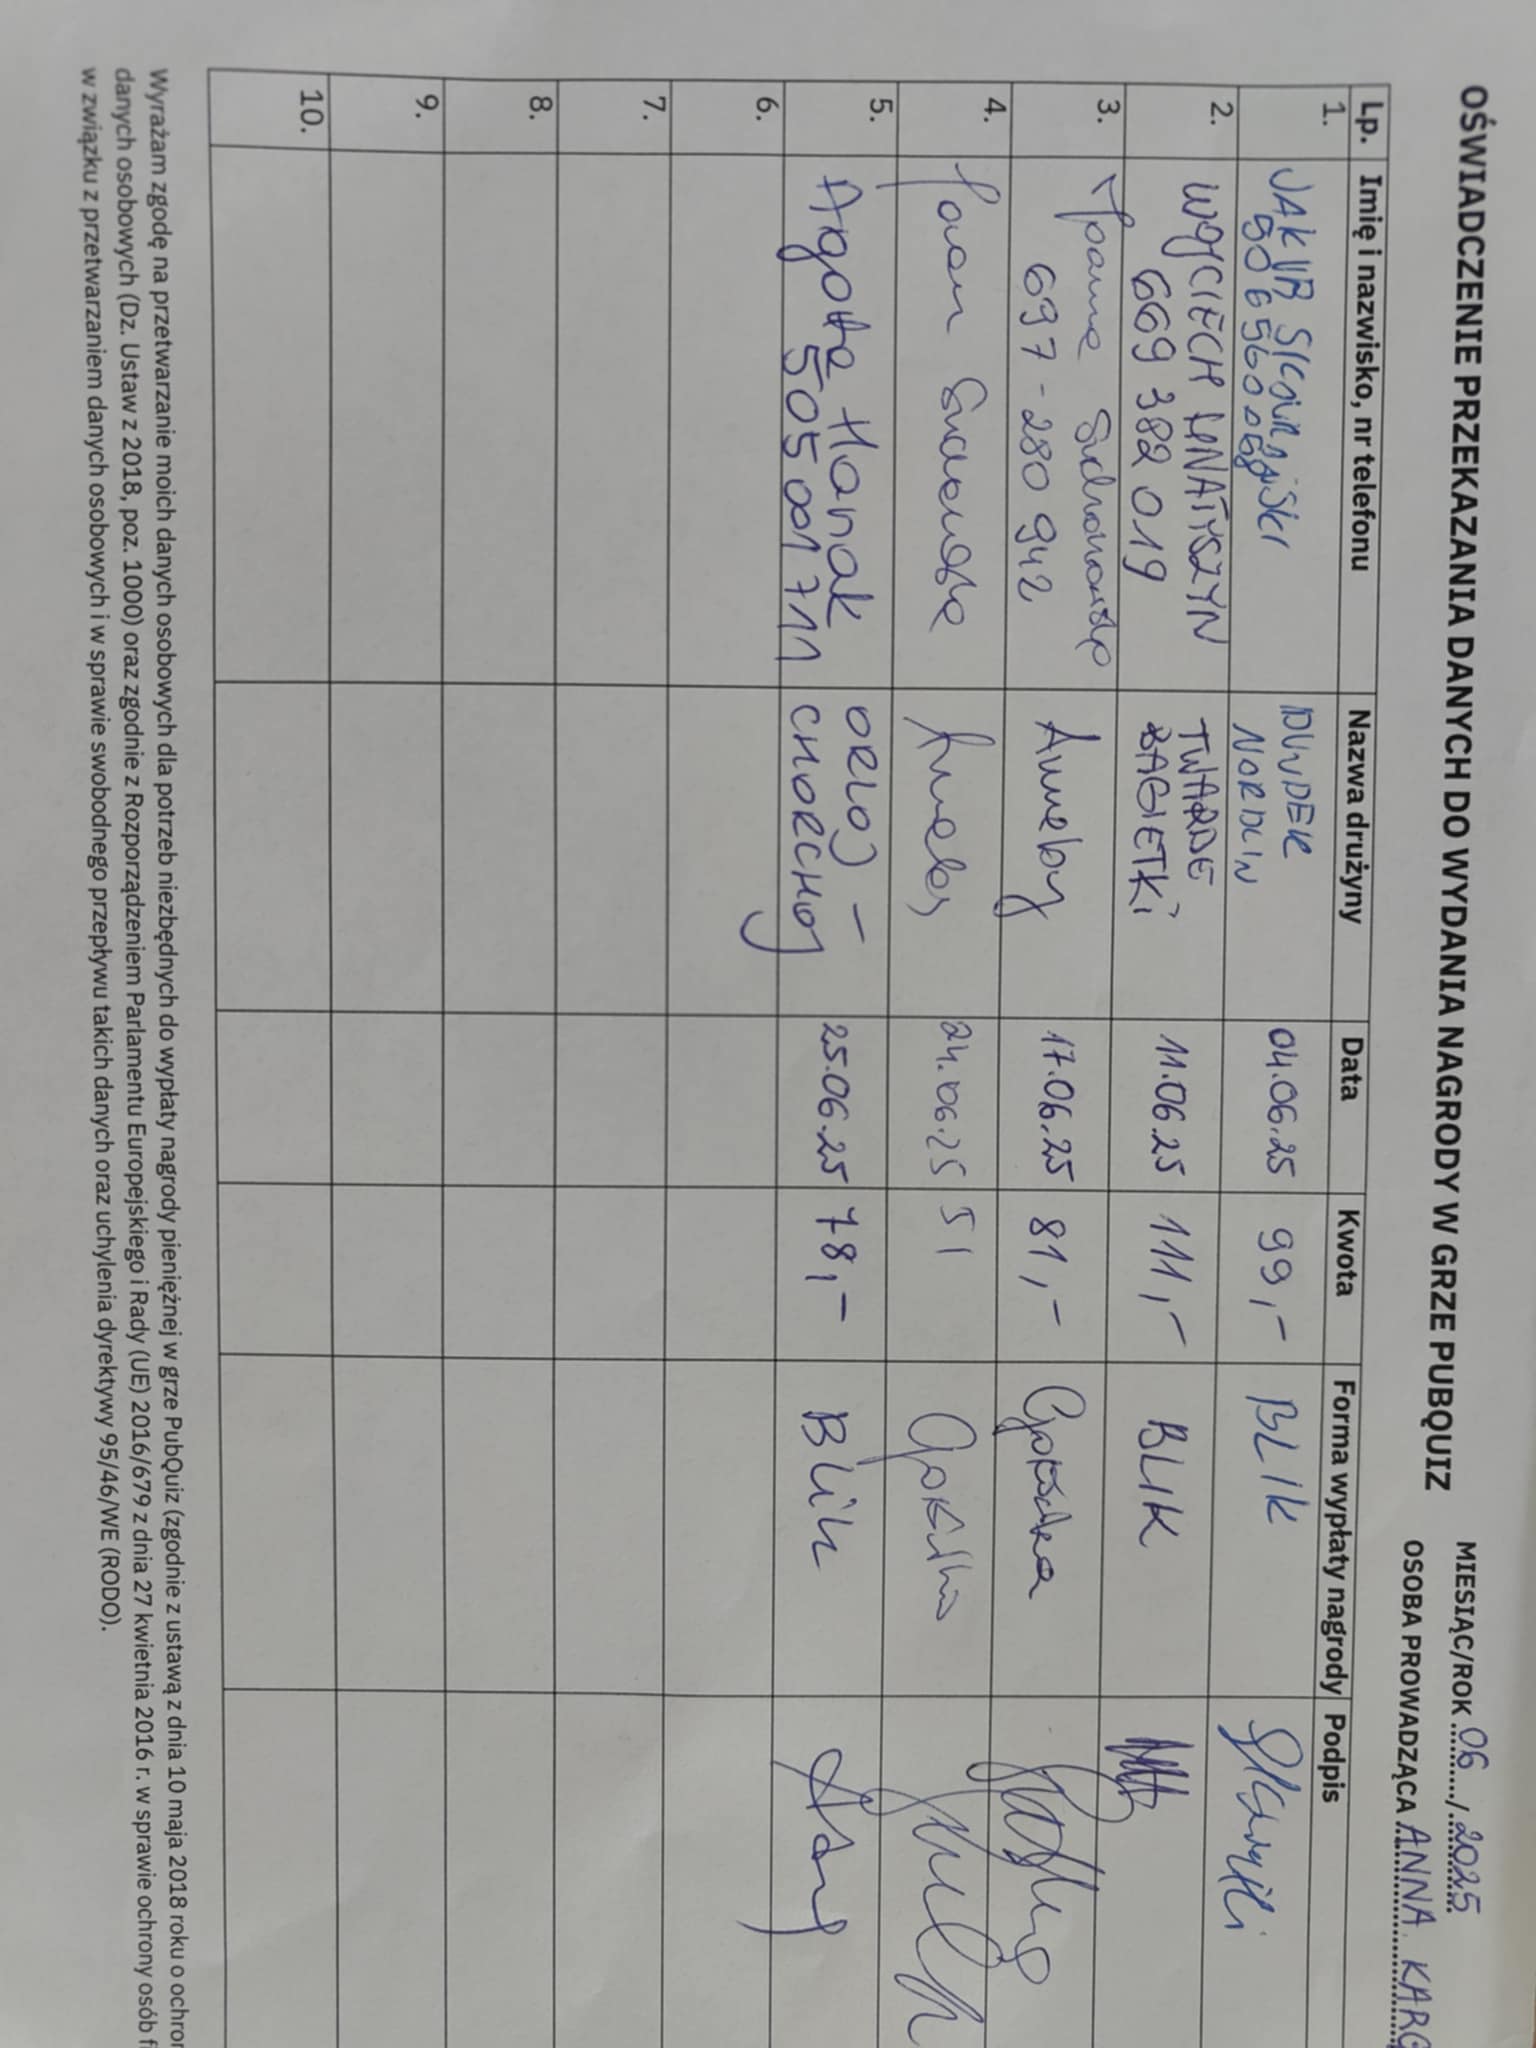 OŚWIADCZENIE PRZEKAZANIA DANYCH DO WYDANIA NAGRODY W GRZE PUBQUIZ
MIESIĄC/ROK 06 / 2025
OSOBA PROWADZĄCA ANNA KARG
Lp. Imię i nazwisko, nr telefonu Nazwa drużyny Data Kwota Forma wypłaty nagrody Podpis
1. JAKUB DUNDER NORDLIN 04.06.25 99,- BLIK
2. WOJCIECH 669 382 019 TWARDE BAGIETKI 11.06.25 111,- BLIK
3. 697-280 942 Anneby 17.06.25 81,- Gotówka
4. 24.06.25 51 Gotówka
5. Agata Hanak 505 001 711 ORŁOJ - CHORCHOJ 25.06.25 78,- Blik
6.
7.
8.
9.
10.
Wyrażam zgodę na przetwarzanie moich danych osobowych dla potrzeb niezbędnych do wypłaty nagrody pieniężnej w grze PubQuiz (zgodnie z ustawą z dnia 10 maja 2018 roku o ochron
danych osobowych (Dz. Ustaw z 2018, poz. 1000) oraz zgodnie z Rozporządzeniem Parlamentu Europejskiego i Rady (UE) 2016/679 z dnia 27 kwietnia 2016 r. w sprawie ochrony osób fi
w związku z przetwarzaniem danych osobowych i w sprawie swobodnego przepływu takich danych oraz uchylenia dyrektywy 95/46/WE (RODO).